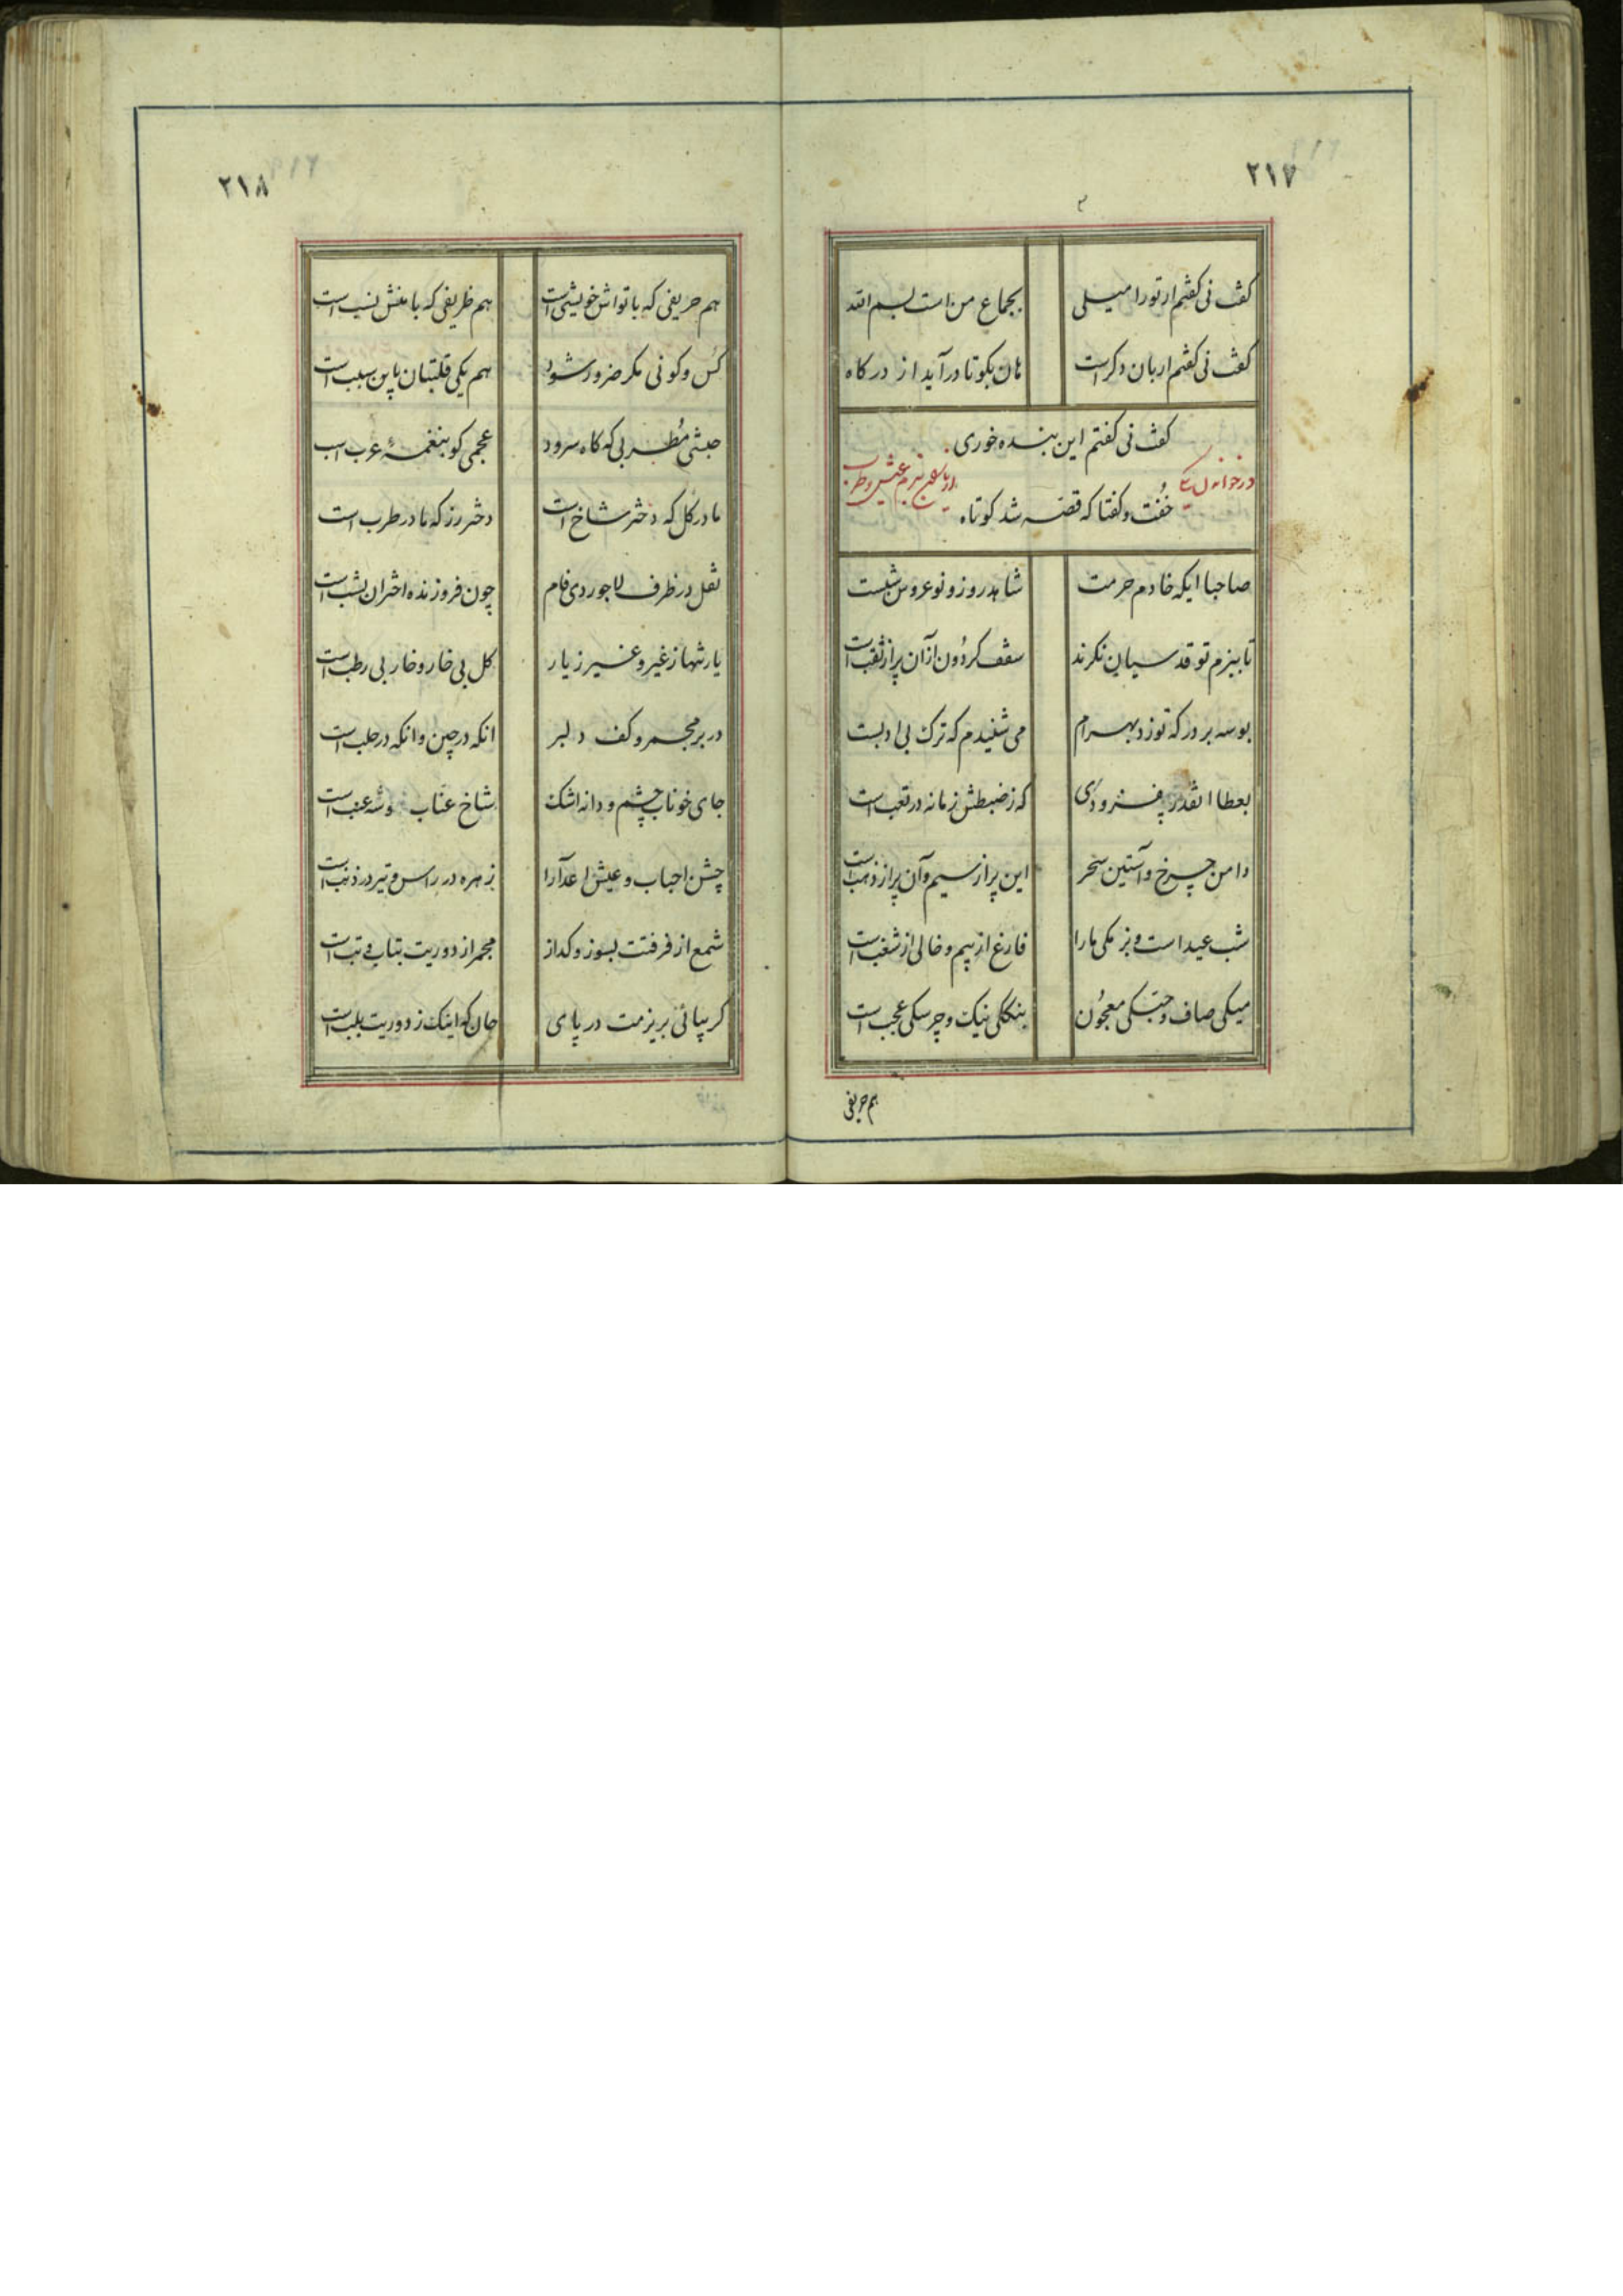 ۲۱۷
کفت نی کفتم ار تو را میلی بجماع من است بسم الله
کفت نی کفتم ار بان دکر است هان بکو تا درآید از درکاه
کفت نی کفتم این بنده خوری
در خواندن یکی از بزم عیش و طرب
خُفت و کفتا که قصه شد کوتاه
صاحبا ایکه خادم حرمت شاهد روز و نو عروس شبست
تا ببزم تو قدسیان نکرند سقف کردون از آن پر از ثقب است
بوسه بر در که تو زد بهرام می شنیدم که ترک بی ادبست
بعطا انقدر بفزودی که ز ضبطش زمانه در تعب است
دامن چرخ و آستین سحر این پر از سیم و آن پر از ذهب است
شب عید است و بزمکی ما را فارغ از بیم و خالی از شغب است
میکی صاف و حبکی معجُون بنککی نیک و چرسکی عجب است
هم حریفی
۲۱۸
هم حریفی که با تواش خویشی است هم ظریفی که با منش نسب است
کس و کونی مکر ضرور شود هم یکی قلتبان باین سبب است
حبشی مُطربی که کاه سرود عجمی کو بنغمهٔ عرب است
مادر کل که دختر شاخ است دختر رز که مادر طرب است
نقل در ظرف لاجوردی فام چون فروزنده اختران بشب است
یار تنها ز غیر و غیر ز یار کل بی خار و خار بی رطب است
در بر مجمر و کف دلبر انکه در چین و انکه در حلب است
جای خوناب چشم و دانه اشک شاخ عناب و شه عنب است
جشن احباب و عیش اعدا را زهره در راس و تیر در ذنب است
شمع از فرقتت بسوز و کداز مجمر از دوریت بتاب و تب است
کر بیائی بریزمت در پای جان که اینک ز دوریت بلب است